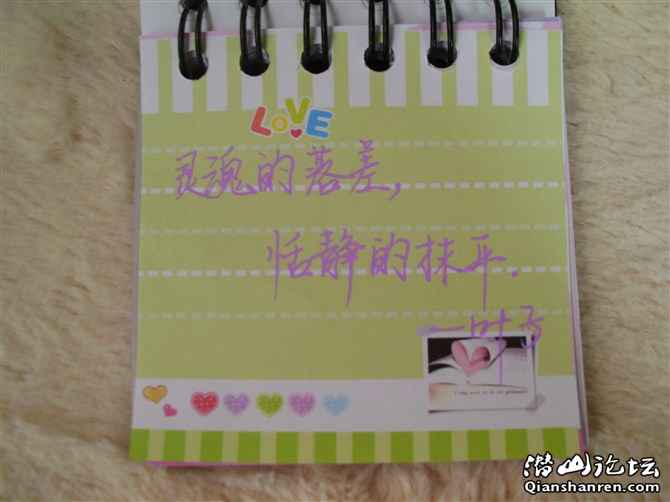 LOVE
灵魂的落差,
恬静的抹平.
一叶子
潜山论坛
Qianshanren.com